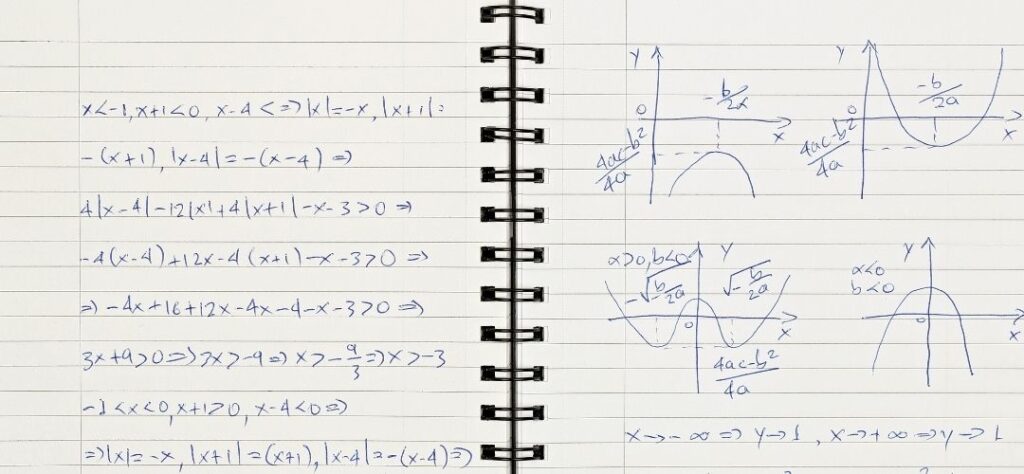 x<-1, x+1<0, x-4<=>|x|=-x, |x+1|=
-(x+1), |x-4|=-(x-4) =>
4|x-4|-12|x|+4|x+1|-x-3>0 =>
-4(x-4)+12x-4(x+1)-x-3>0 =>
=> -4x+16+12x-4x-4-x-3>0 =>
3x+9>0=>3x>-9=>x>-9/3=>x>-3
-1<x<0, x+1>0, x-4<0=>
=>|x|=-x, |x+1|=(x+1), |x-4|=-(x-4)=>
y
0
-b/2x
x
4ac-b²/4a
y
0
-b/2a
x
4ac-b²/4a
α>0, b<0
y
-√-b/2a
√-b/2a
0
x
4ac-b²/4a
y
α<0
b<0
0
x
x→-∞ => y→1, x→+∞ => y→1